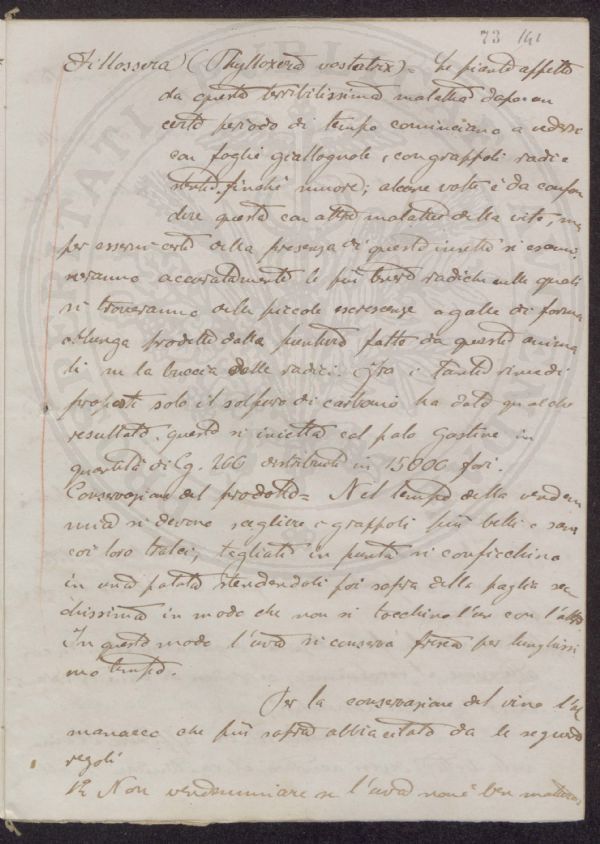 73 141
Fillossera (Phylloxera vastatrix) = Le piante affette
da questa terribilissima malattia dopo un
certo periodo di tempo cominciano a vedersi
con foglie giallognole, con grappoli radi e
stenti, finchè muore; alcune volte è da confon
dere questa con altre malattie della vite, ma
per esserne certi della presenza di questo insetto si esami
neranno accuratamente le più tenere radiche nelle quali
si troveranno delle piccole escrescenze o galle di forma
oblunga prodotte dalla puntura fatta da questi anima
li in la buccia delle radici. Fra i tanti rimedi
proposti solo il solfuro di carbonio ha dato qualche
resultato, questo si inietta col palo Gastine in
quantità di Cg. 200 distribuiti in 15000 fori.
Conservazione del prodotto = Nel tempo della vendem
mia si devono scegliere i grappoli più belli e sani
coi loro tralci, tagliati in punta si conficchino
in una patata stendendoli poi sopra della paglia sec
chissima in modo che non si tocchino l'uno con l'altro
In questo modo l'uva si conserva fresca per lunghissi
mo tempo.
Per la conservazione del vino l'al
manacco che più sopra abbia citato da le seguenti
regoli
1a Non vendemmiare se l'uva non è ben matura,